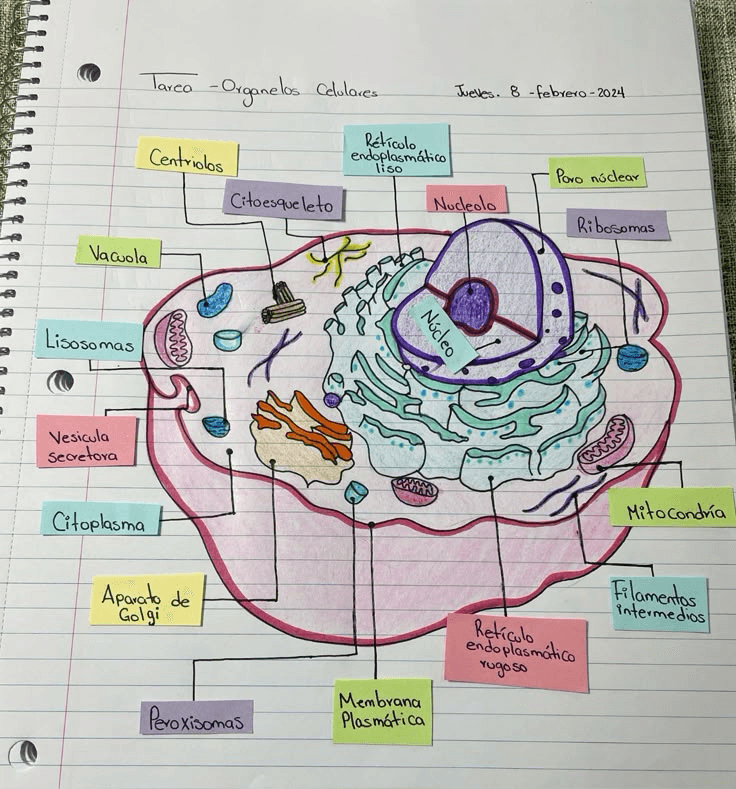 Tarea - Organelos Celulares
Jueves. 8 - febrero - 2024
Centriolos
Retículo
endoplasmático
liso
Poro núclear
Citoesqueleto
Nucleolo
Ribosomas
Vacuola
Núcleo
Lisosomas
Vesicula
secretora
Citoplasma
Mitocondría
Aparato de
Golgi
Filamentos
intermedios
Retículo
endoplasmático
rugoso
Peroxisomas
Membrana
Plasmática